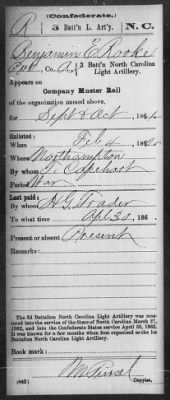 (Confederate.)
R 3 Batt'n L. Art'y. N. C.
Benjamin E. Rooke
Co. A, 3 Batt'n North Carolina
Light Artillery.
Appears on
Company Muster Roll
of the organization named above,
for Sept & Oct, 186
Enlisted:
When Feb 186
Where Northampton
By whom Capehart
Period War
Last paid:
By whom
To what time Apl 30, 186
Present or absent Present
Remarks:
The 3d Battalion North Carolina Light Artillery was mustered into the service of the State of North Carolina March 27, 1862, and into the Confederate States service April 30, 1862. It was known for a few months when first organized as the 1st Battalion North Carolina Light Artillery.
Book mark:
(642) Copyist.